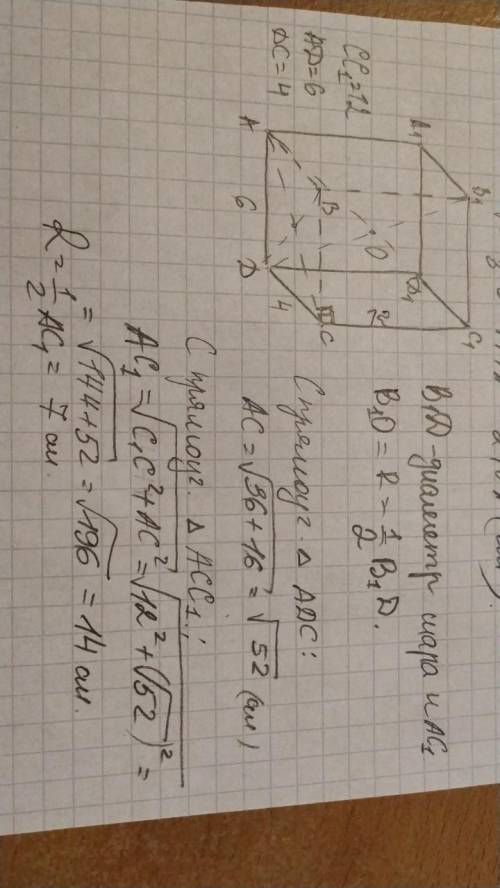 CC₁=12
AD=6
DC=4
A₁
B₁
C₁
D₁
A
B
C
D
O
6
4
12
B₁D-диаметр шара и AC₁
B₁O = R = 1/2 B₁D.
С прямоуг. △ ADC:
AC = √36+16 = √52 (см)
С прямоуг. △ ACC₁:
AC₁ = √C₁C²+AC² = √12²+(√52)² =
= √144+52 = √196 = 14 см.
R = 1/2 AC₁ = 7 см.